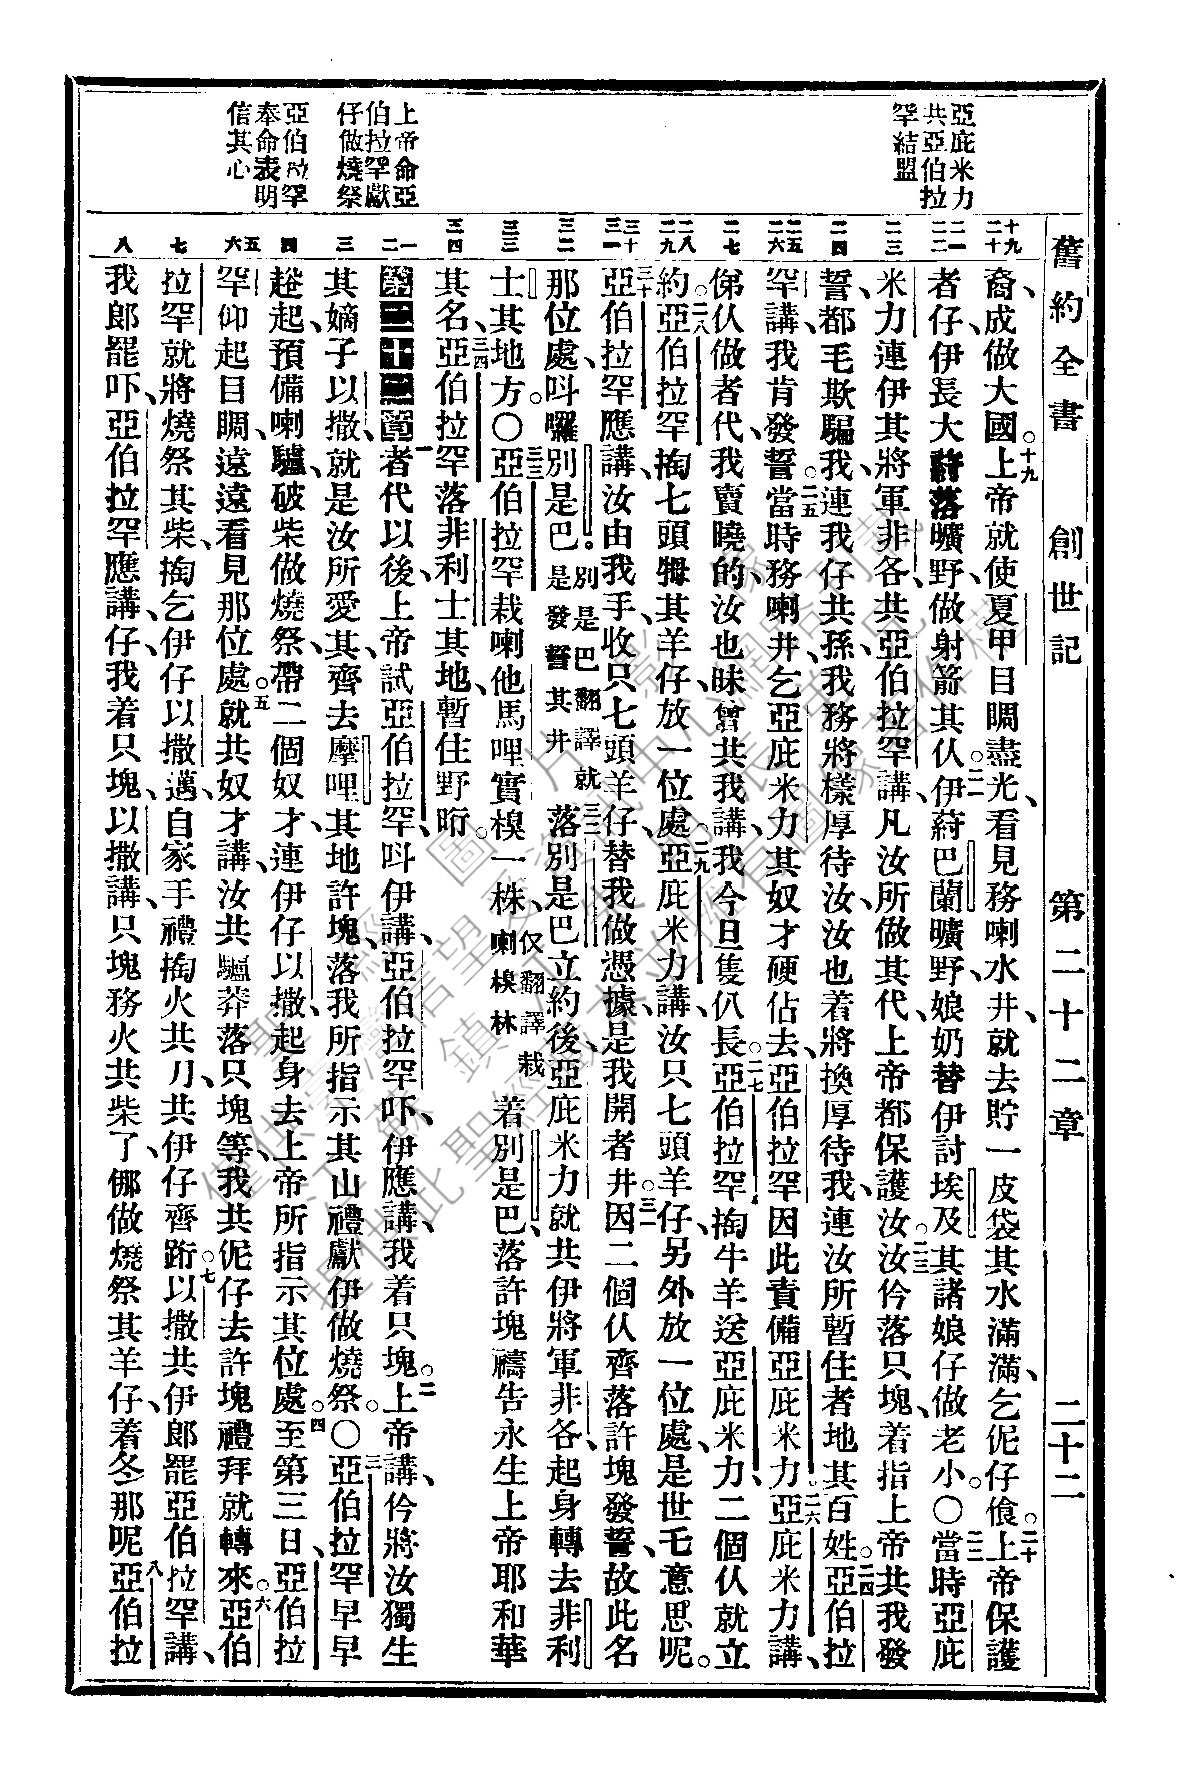 舊約全書 創世記 第二十二章 二十二
亞庇米力
共亞伯拉
罕結盟
上帝命亞
伯拉罕獻
仔做燒祭
亞伯拉罕
奉命表明
信其心
十九 二十
二一 二二
二三
二四
二五 二六
二七
二八 二九
三十 三一
三二
三三
三四
一 二
三
四
五 六
七
八
裔、成做大國。十九上帝就使夏甲目睭盡光、看見務喇水井、就去貯一皮袋其水滿滿、乞伲仔飲。二十上帝保護
者仔、伊長大許落曠野、做射箭其仈。二一伊蒪巴蘭曠野、娘奶替伊討埃及其諸娘仔做老小。〇二二當時亞庇
米力連伊其將軍非各、共亞伯拉罕講、凡汝所做其代、上帝都保護汝。二三汝仱落只塊、着指上帝共我發
誓、都毛欺騙我、連我仔共孫、我務將樣厚待汝、汝也着將換厚待我、連汝所暫住者地其百姓。二四亞伯拉
罕講、我肯發誓。二五當時務喇井、乞亞庇米力其奴才硬佔去、亞伯拉罕因此責備亞庇米力。二六亞庇米力講、
俤仈做者代、我賣曉的、汝也昧曾共我講、我今旦隻仈長。二七亞伯拉罕掏牛羊送亞庇米力、二個仈就立
約。二八亞伯拉罕掏七頭𤙩其羊仔、放一位處。二九亞庇米力講、汝只七頭羊仔、另外放一位處、是世乇意思呢。
三十亞伯拉罕應講、汝由我手收只七頭羊仔、替我做憑據、是我開者井。三一因二個仈齊落許塊發誓、故此名
那位處、呌囉別是巴。別是巴翻譯就是發誓其井三二落別是巴立約後、亞庇米力就共伊將軍非各、起身轉去非利
士其地方。〇三三亞伯拉罕栽喇他馬哩實模一株、仅翻譯栽喇模林着別是巴落許塊禱告永生上帝耶和華
其名。三四亞伯拉罕落非利士其地、暫住野昕。
第二十二章一者代以後、上帝試亞伯拉罕、呌伊講、亞伯拉罕吓、伊應講、我着只塊。二上帝講、仱將汝獨生
其嫡子以撒、就是汝所愛其、齊去摩哩其地許塊、落我所指示其山禮獻伊做燒祭。〇三亞伯拉罕早早
趂起、預備喇驢、破柴做燒祭、帶二個奴才、連伊仔以撒、起身去上帝所指示其位處。四至第三日、亞伯拉
罕仰起目睭、遠遠看見那位處。五就共奴才講、汝共驢莽落只塊等、我共伲仔去許塊禮拜就轉來。六亞伯
拉罕就將燒祭其柴、掏乞伊仔以撒邁、自家手禮掏火共刀、共伊仔齊跡。七以撒共伊郎罷亞伯拉罕講、
我郎罷吓、亞伯拉罕應講、仔、我着只塊、以撒講、只塊務火共柴了、倻做燒祭其羊仔、着冬那呢。八亞伯拉